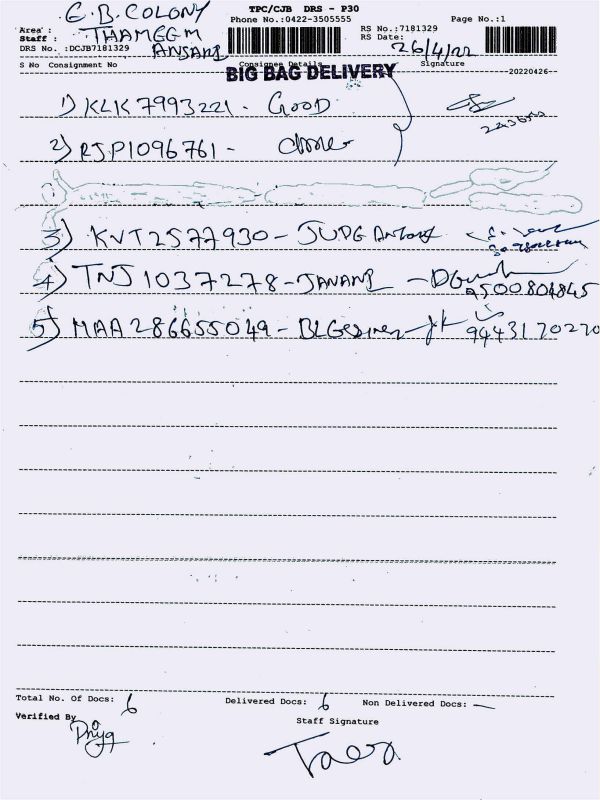 G.B. COLONY
TPC/CJB DRS - P30
Area :
Phone No.:0422-3505555
Page No.:1
Staff : THAMEEM ANSARI
RS No.:7181329
RS Date: 26/4/22
DRS No. :DCJB7181329
S No Consignment No Consignee Details Signature
BIG BAG DELIVERY
20220426
1) KLK 7993221 - GOOD
2) RJP1096761 -
3) KVT2577930 - JUDG
4) TNJ 1037278 - JANANI - 9500804845
5) MAA 286655049 - 9443170270
Total No. Of Docs: 6 Delivered Docs: 6 Non Delivered Docs: —
Verified By
Priya
Staff Signature